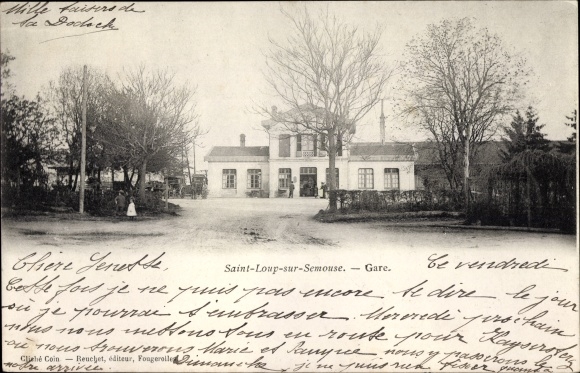 Mille baisers de
ta Dodoch
Saint-Loup-sur-Semouse. — Gare.
Ce vendredi
Chère Jenette,
Cette fois je ne puis pas encore te dire le jour
où je pourrai t'embrasser. Mercredi prochain
nous nous mettons tous en route pour
où nous trouverons Marie et nous y passerons la
Cliché Coin — Reuchet, éditeur, Fougerolles
notre arrivée. Dimanche je ne puis rien fixer